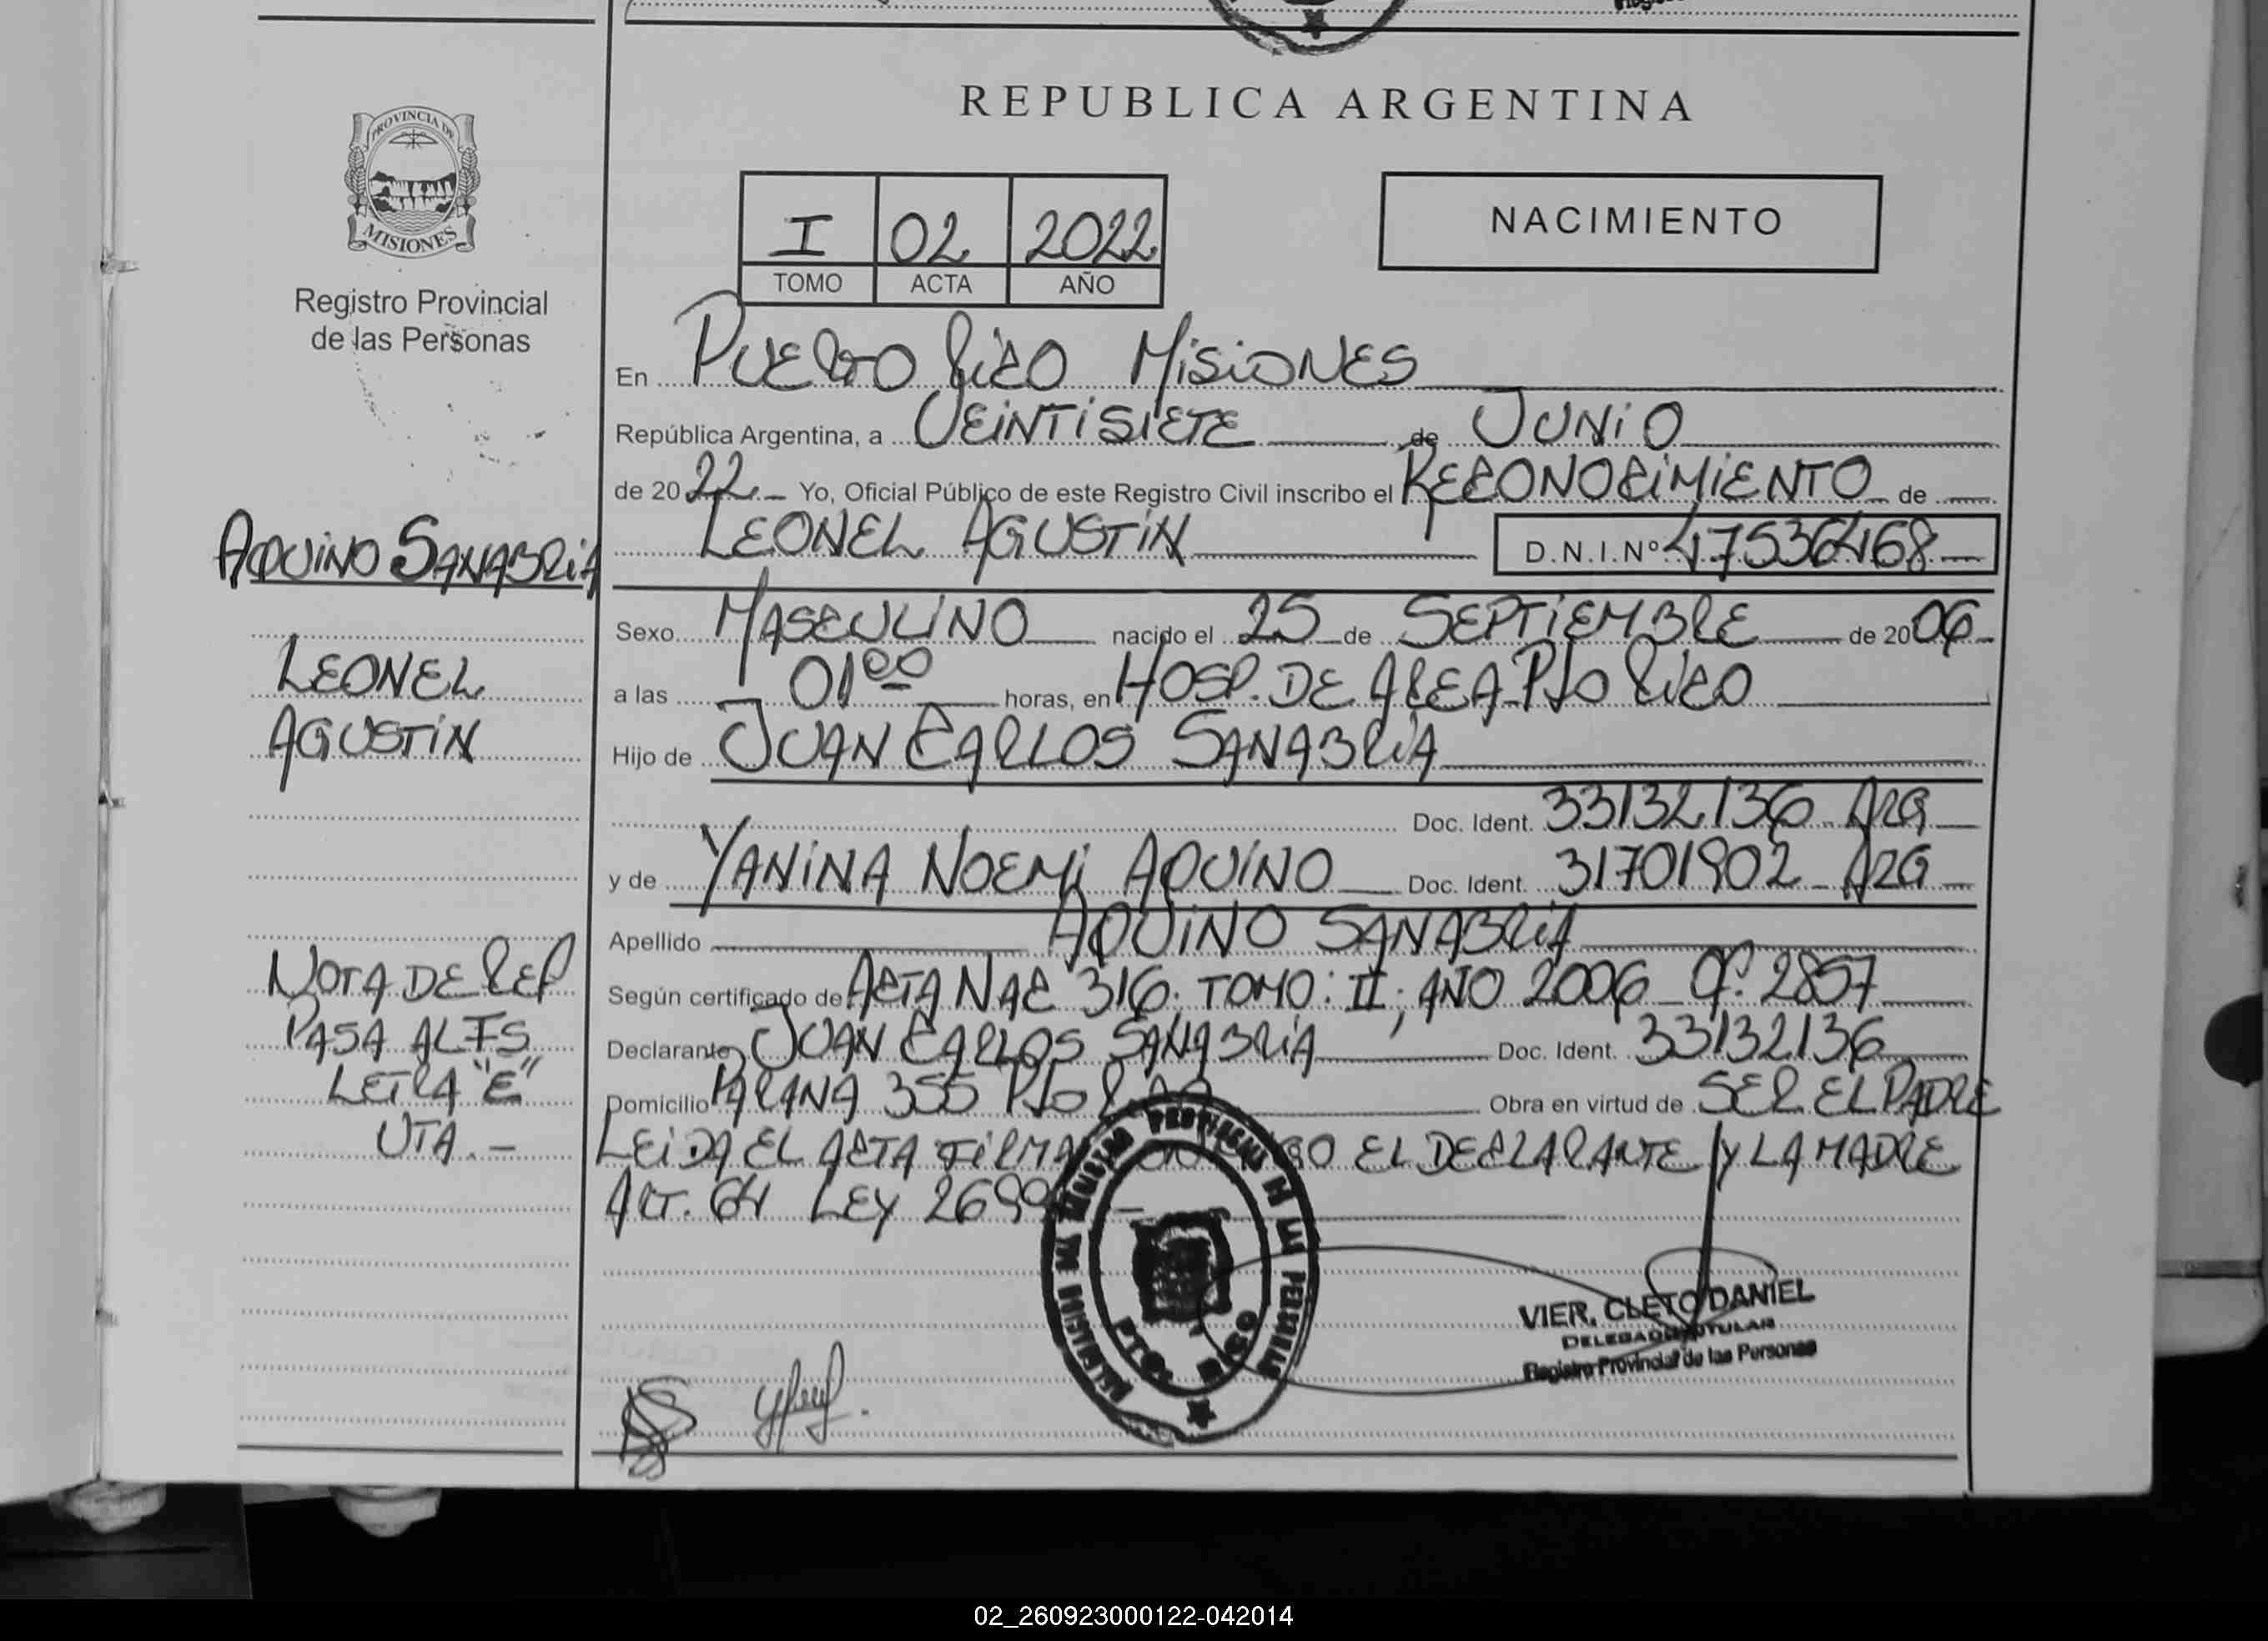 REPUBLICA ARGENTINA
PROVINCIA DE
MISIONES
Registro Provincial
de las Personas
I 02 2022
TOMO ACTA AÑO
NACIMIENTO
En PUERTO RICO MISIONES
República Argentina, a VEINTISIETE de JUNIO
de 2022 Yo, Oficial Público de este Registro Civil inscribo el RECONOCIMIENTO de
LEONEL AGUSTIN D.N.I.Nº 47536468
AQUINO SANABRIA
LEONEL
AGUSTIN
Sexo MASCULINO nacido el 25 de SEPTIEMBRE de 2006
a las 01⁰⁰ horas, en HOSP. DE AREA PTO RICO
Hijo de JUAN CARLOS SANABRIA
Doc. Ident. 33132136 ARG
y de YANINA NOEMI AQUINO Doc. Ident. 31701902 ARG
Apellido AQUINO SANABRIA
Según certificado de ACTA NAC 316. TOMO: II; AÑO 2006 Of. 2857
Declarante JUAN CARLOS SANABRIA Doc. Ident. 33132136
Domicilio PARANA 355 PTO RICO Obra en virtud de SER EL PADRE
LEIDA EL ACTA FIRMA EL DECLARANTE Y LA MADRE
ART. 64 LEY 26994
NOTA DE REF
PASA AL FS
LETRA "E"
UTA.-
VIER, CLETO DANIEL
DELEGADO TITULAR
Registro Provincial de las Personas
02_260923000122-042014